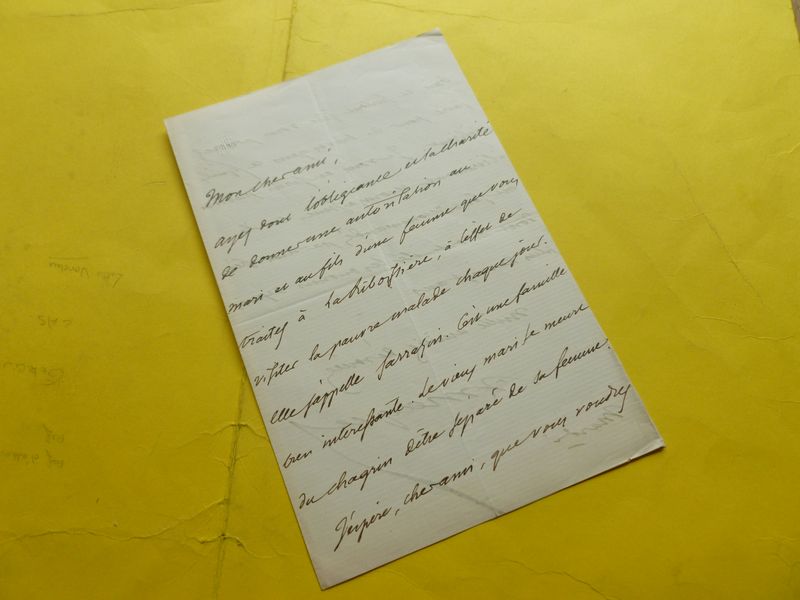 Mon cher ami,
ayez donc l'obligeance et la charité
de donner une autorisation au
mari et au fils d'une femme que vous
traitez à Lariboissière, à l'effet de
visiter la pauvre malade chaque jour.
Elle s'appelle Sarrazin. C'est une famille
bien intéressante. Le vieux mari se meurt
du chagrin d'être séparé de sa femme.
J'espère, cher ami, que vous voudrez